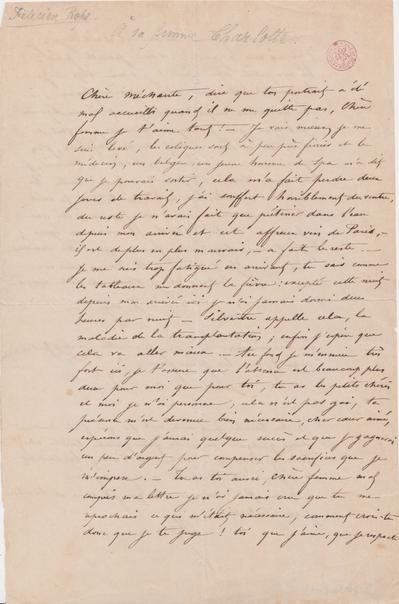 Félicien Rops
À sa femme Charlotte
Chère méchante, dire que ton portrait a été
mal accueilli quand il ne me quitte pas, chère
femme je t'aime tant! — Je vais mieux, je me
suis levé, les coliques sont à peu près finies et le
médecin, un belge, un jeune homme de Spa m'a dit
que je pouvais sortir, cela m'a fait perdre deux
jours de travail, j'ai souffert horriblement du ventre,
du reste je n'avais fait que piétiner dans l'eau
depuis mon arrivée et cet affreux vin de Paris,
il est de plus en plus mauvais, — a fait le reste. —
Je me suis trop fatigué en arrivant, tu sais comme
les tableaux me donnent la fièvre: excepté cette nuit
depuis mon arrivée ici je n'ai jamais dormi deux
heures par nuit Silvestre appelle cela, la
maladie de la transplantation; enfin j'espère que
cela va aller mieux — Au fond je m'ennuie très
fort ici, je t'assure que l'absence est beaucoup plus
dure pour moi que pour toi, tu as les petits chéris
et moi je n'ai personne; cela n'est pas gai, ta
présence m'est devenue bien nécessaire, cher cœur aimé,
espérons que j'aurai quelque succès et que je gagnerai
un peu d'argent pour compenser les sacrifices que je
m'impose. — Tu as toi aussi, chère femme mal
compris ma lettre je n'ai jamais cru que tu me
reprochais ce qui m'était nécessaire, comment crois-tu
donc que je te juge! toi que j'aime, que je respecte